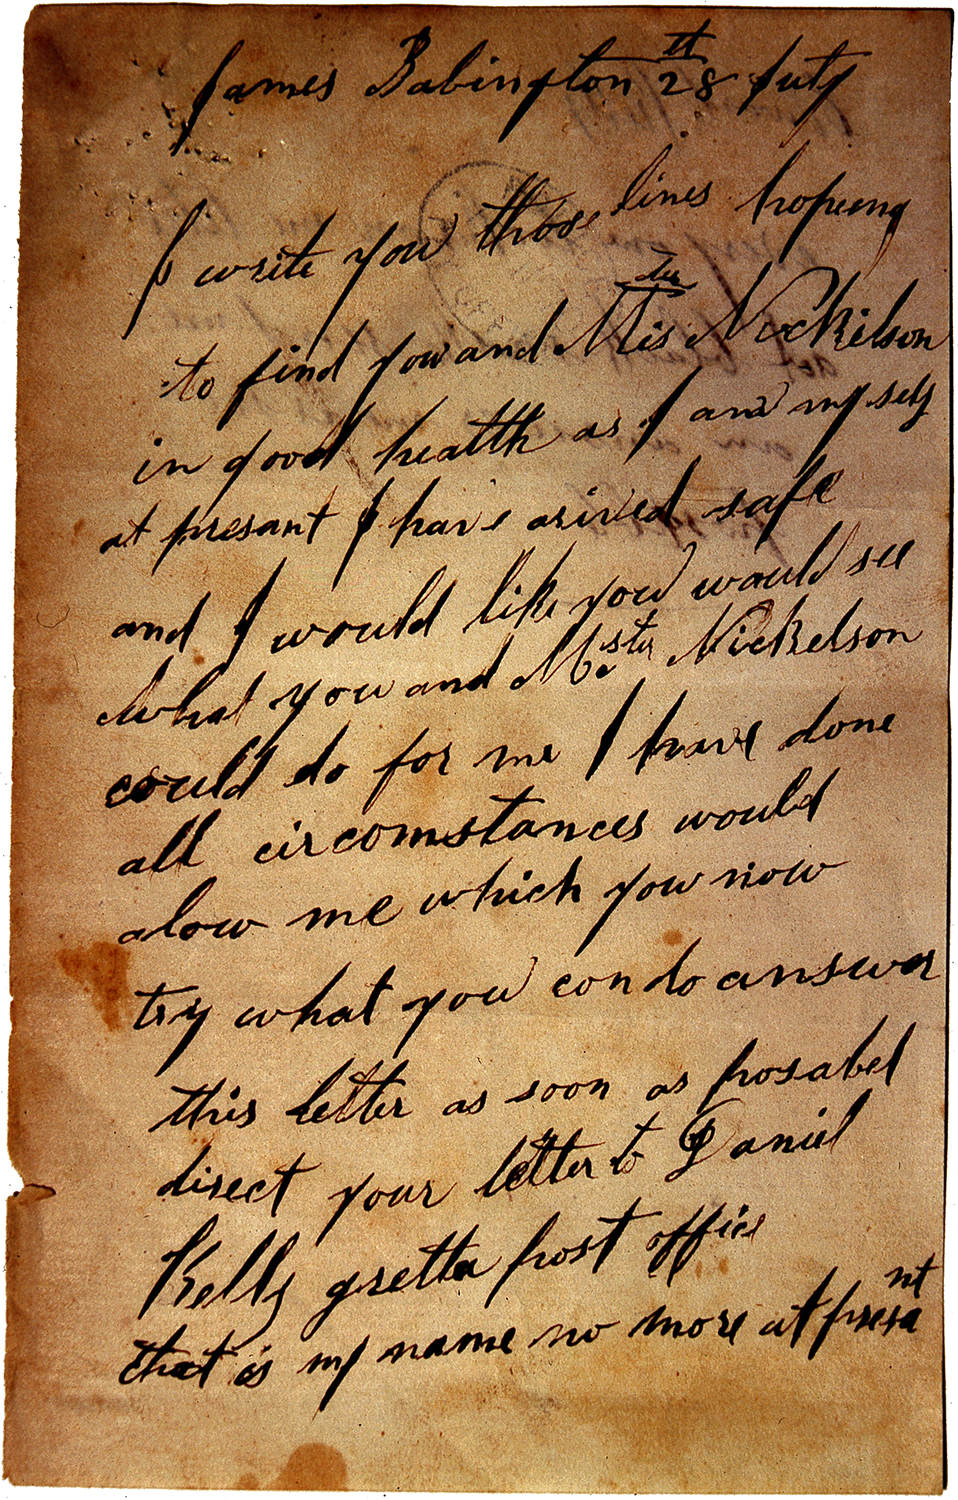 James Babington 28th July
I write you those lines hopeing
to find you and Mister Nickelson
in good health as I am myself
at presant I have arived safe
and I would like you would see
what you and Mister Nickelson
could do for me I have done
all circomstances would
alow me which you now
try what you con do answer
this letter as soon as posabel
direct your letter to Daniel
Kelly gretta post office
that is my name no more at presant